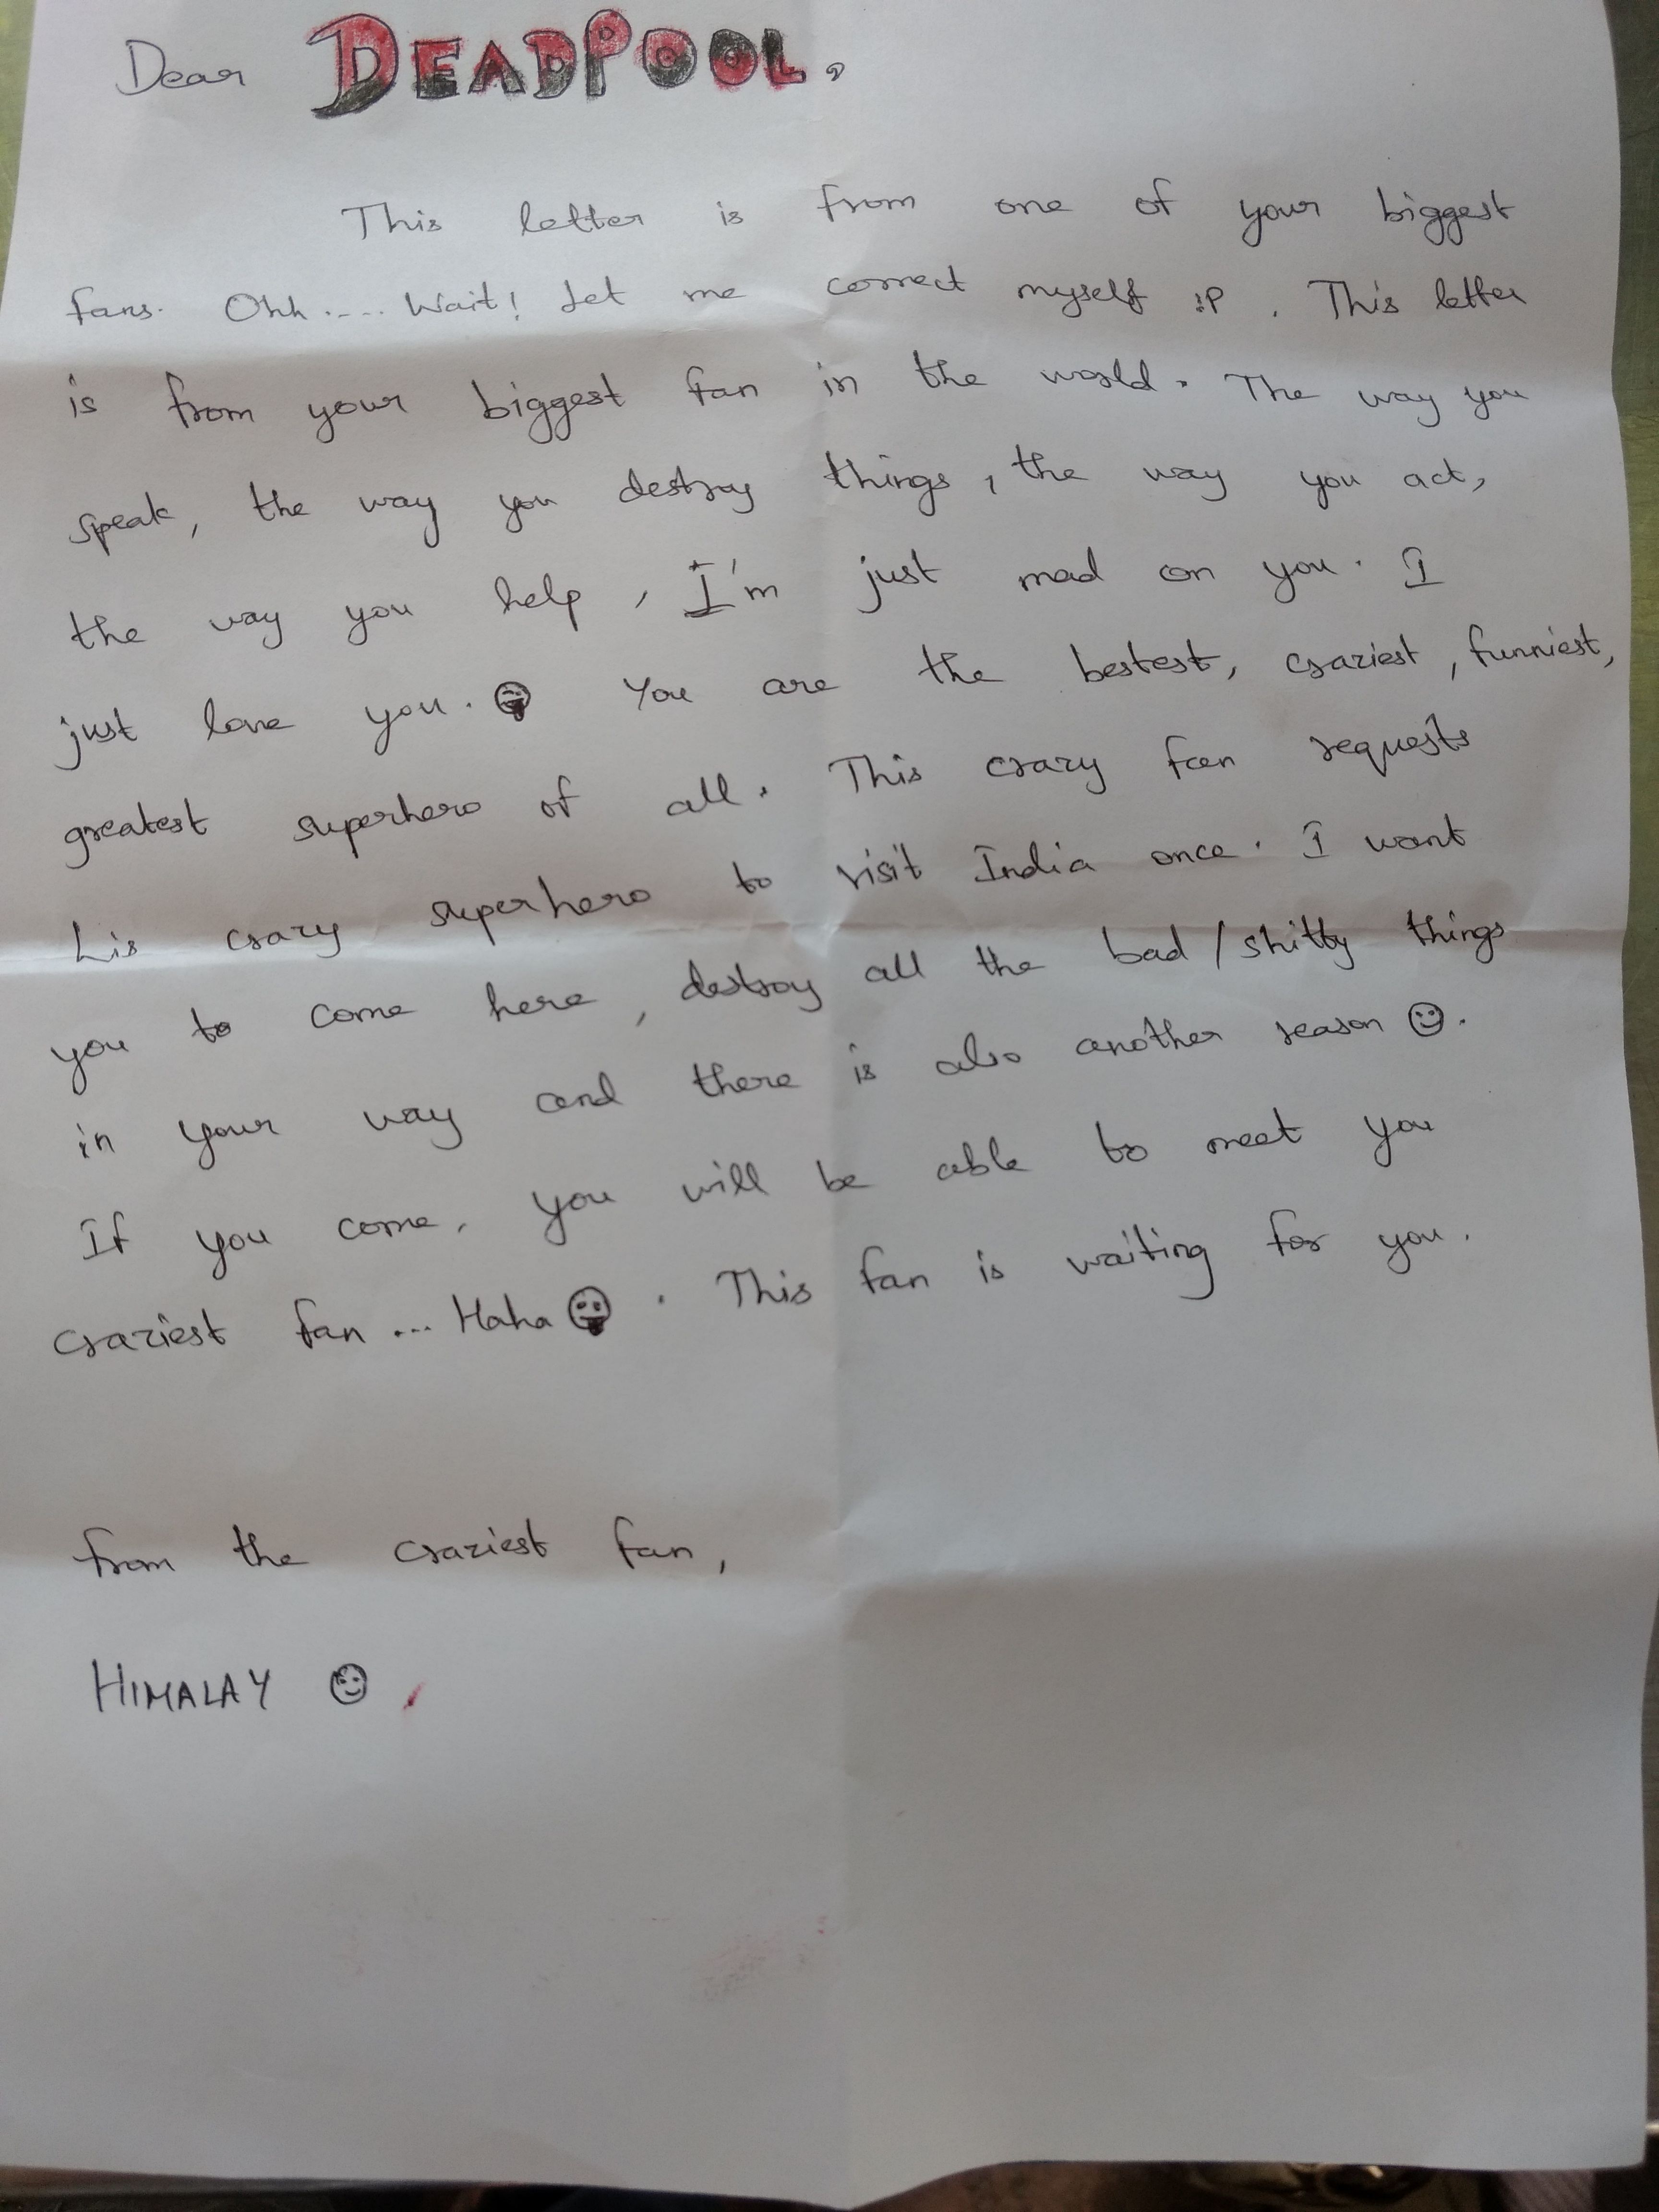 Dear DEADPOOL,
This letter is from one of your biggest
fans. Ohh..... Wait! Let me correct myself :P . This letter
is from your biggest fan in the world. The way you
speak, the way you destroy things, the way you act,
the way you help, I'm just mad on you. I
just love you. 😜 You are the bestest, craziest, funniest,
greatest superhero of all. This crazy fan requests
his crazy superhero to visit India once. I want
you to come here, destroy all the bad/shitty things
in your way and there is also another reason ☺.
If you come, you will be able to meet you
craziest fan... Haha 😛 . This fan is waiting for you.
from the craziest fan,
HIMALAY ☺